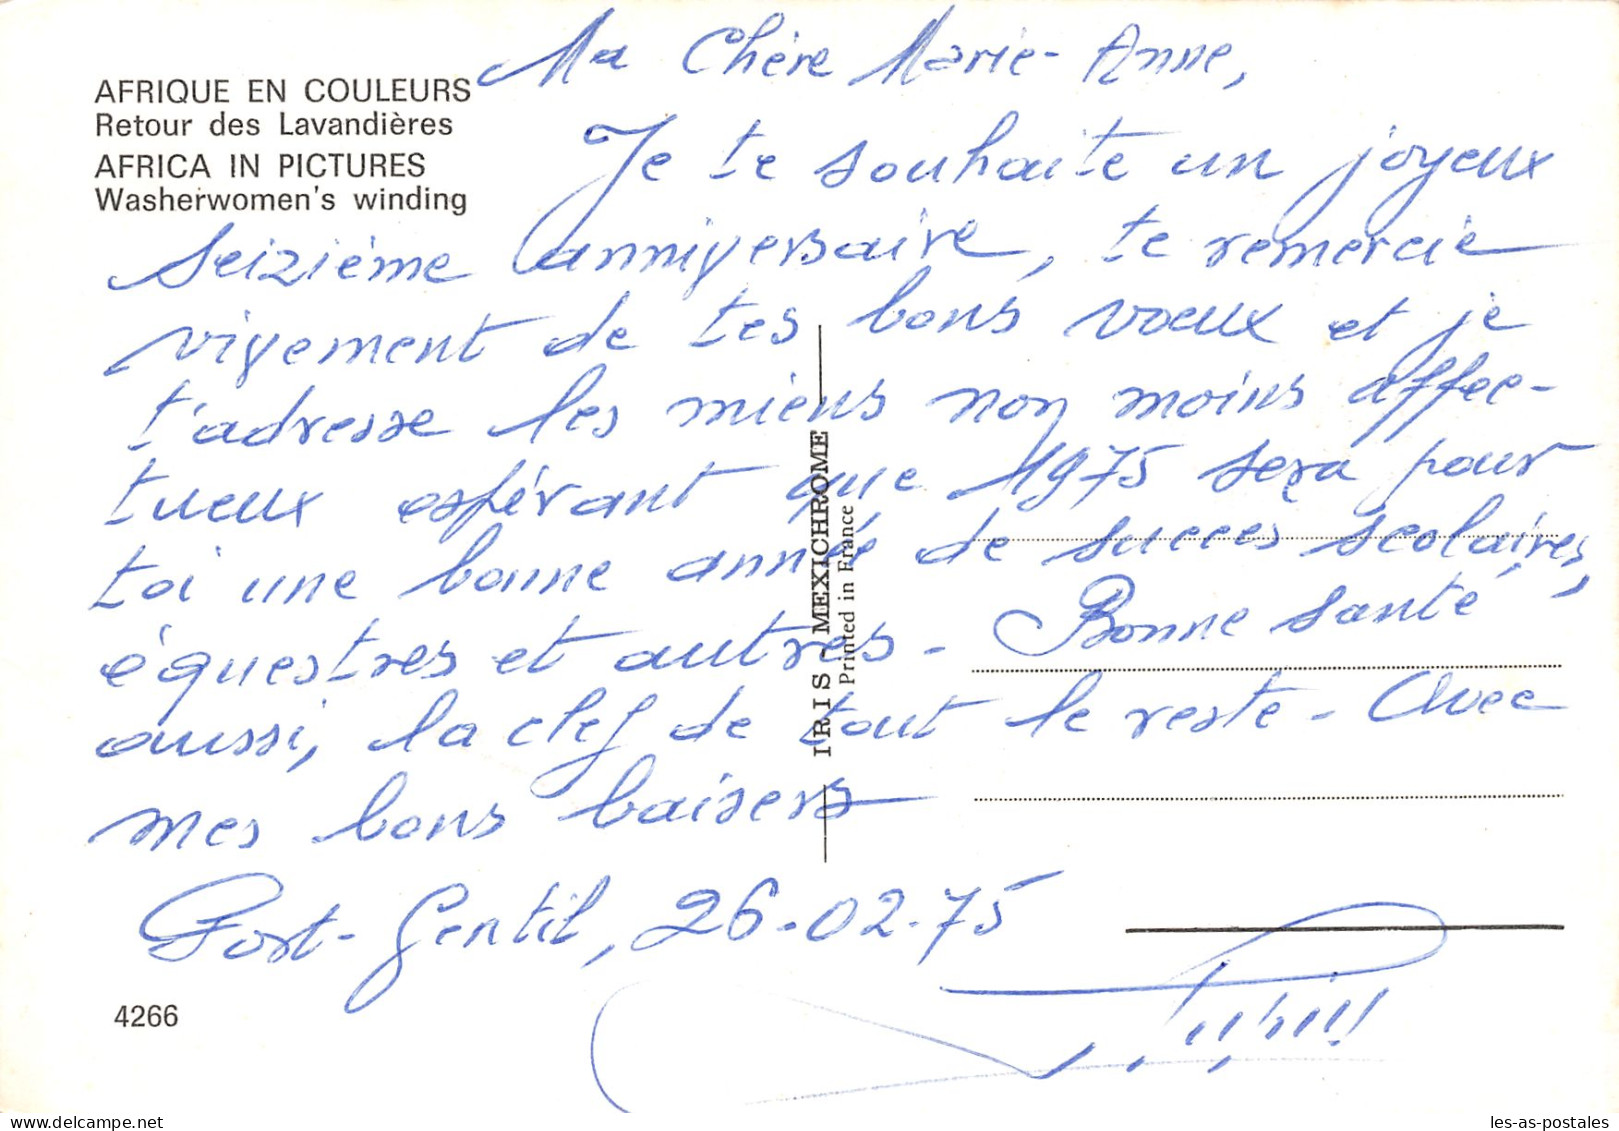 AFRIQUE EN COULEURS
Retour des Lavandières
AFRICA IN PICTURES
Washerwomen's winding
Ma Chère Marie-Anne,
Je te souhaite un joyeux
seizième anniversaire, te remercie
vivement de tes bons vœux et je
t'adresse les miens non moins affec-
tueux espérant que 1975 sera pour
toi une bonne année de succès scolaires,
équestres et autres - Bonne santé
aussi, la clef de tout le reste - Avec
mes bons baisers
Port-Gentil, 26-02-75
IRIS MEXICHROME
Printed in France
4266
© delcampe.net
les-as-postales